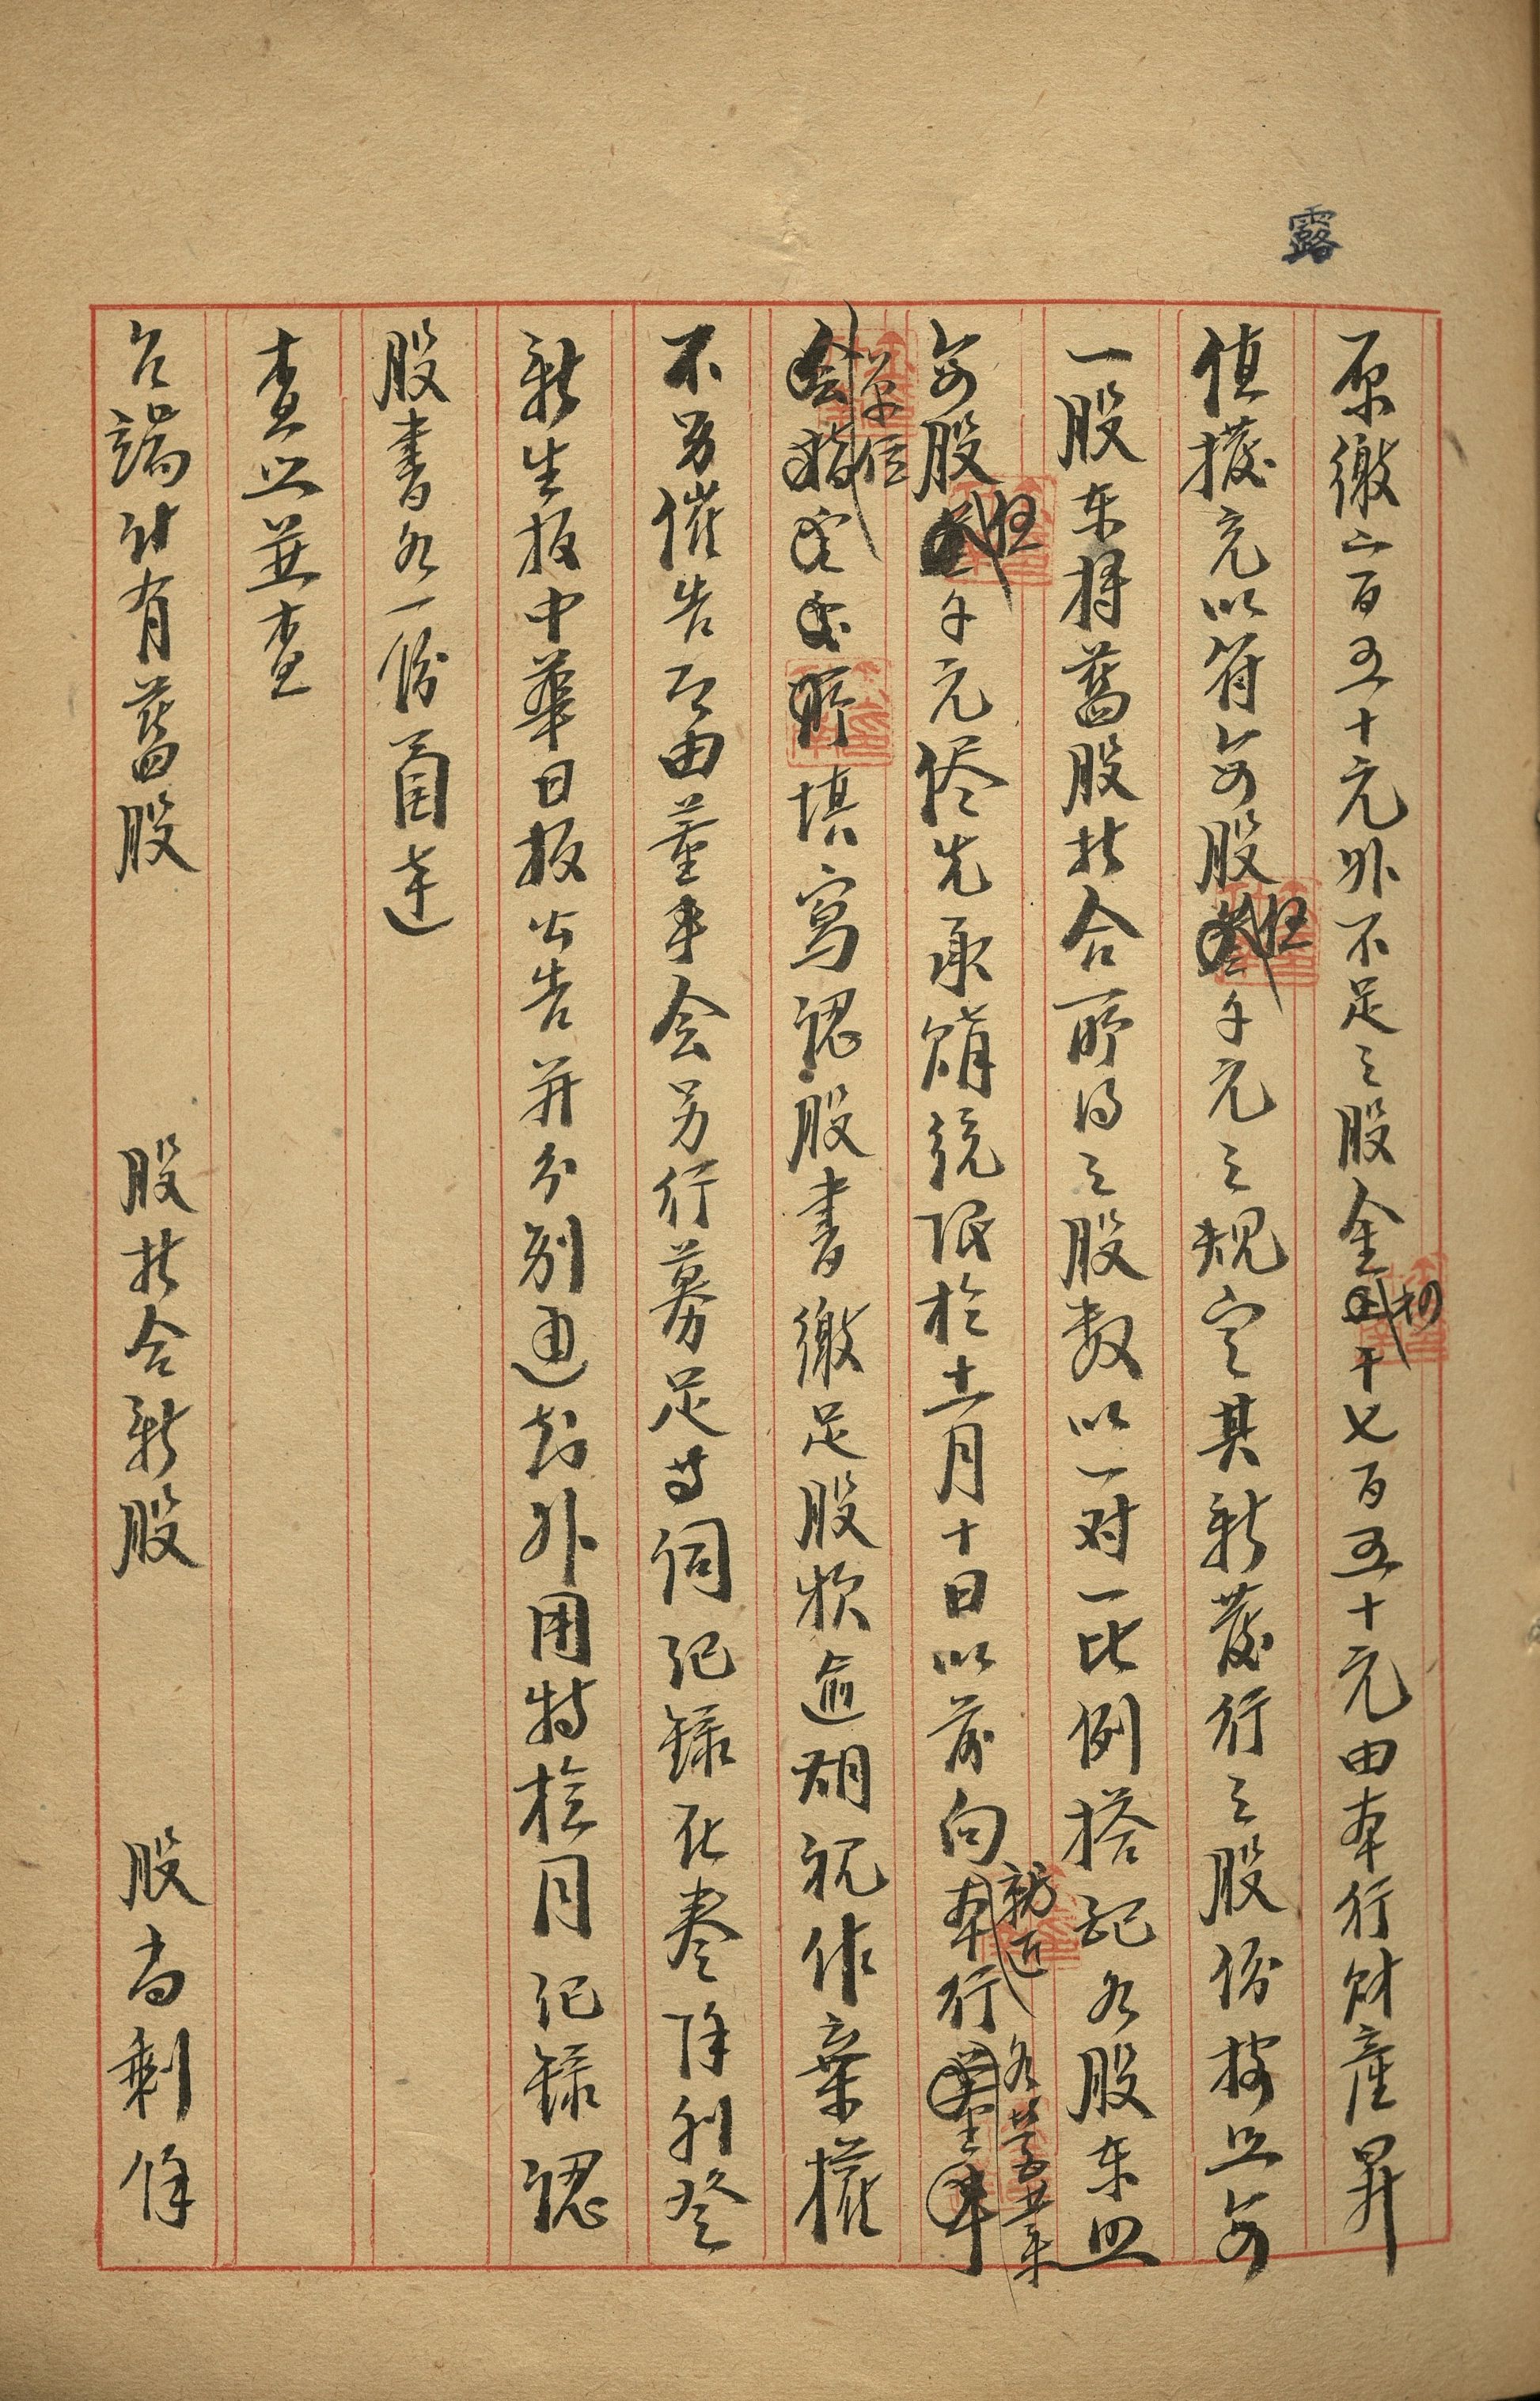 露
原繳二百五十元外不足之股金柒千七百五十元由本行財產昇
值撥充以符每股千元之規定其新發行之股份按照每
一股东将舊股折合所得之股数以一对一比例搭配各股东照
每股千元侭先承購統限於十一月十日以前向就近本行各營業
單位填寫認股書繳足股款逾期視作棄權
不另催告即由董事会另行募足等詞紀錄在卷除刊登
新生报中華日报公告并分別通知外用特檢同紀錄認
股書各一份函達
查照並查
台端計有舊股 股折合新股 股尚剩餘